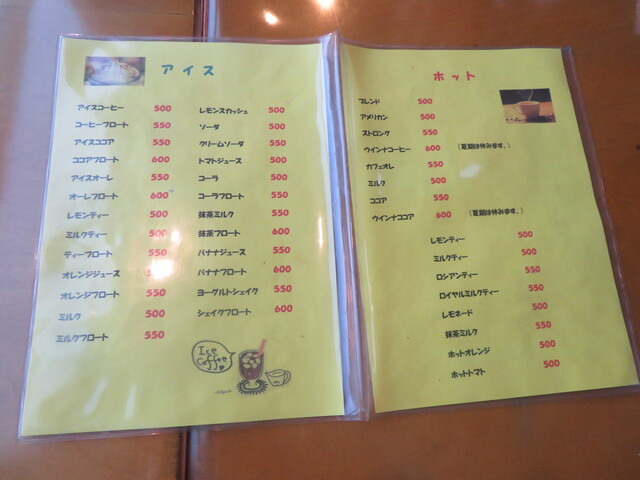 アイス
アイスコーヒー 500
コーヒーフロート 550
アイスココア 550
ココアフロート 600
アイスオーレ 550
オーレフロート 600
レモンティー 500
ミルクティー 500
ティーフロート 550
オレンジジュース
オレンジフロート 550
ミルク 500
ミルクフロート 550
レモンスカッシュ 500
ソーダ 500
クリームソーダ 550
トマトジュース 500
コーラ 500
コーラフロート 550
抹茶ミルク 550
抹茶フロート 600
バナナジュース 550
バナナフロート 600
ヨーグルトシェイク 550
シェイクフロート 600
Ice
Coffee
ホット
ブレンド 500
アメリカン 500
ストロング 550
ウインナコーヒー 600 (夏期は休みます。)
カフェオレ 550
ミルク 500
ココア 550
ウインナココア 600 (夏期は休みます。)
レモンティー 500
ミルクティー 500
ロシアンティー 550
ロイヤルミルクティー 550
レモネード 500
抹茶ミルク 550
ホットオレンジ 500
ホットトマト 500